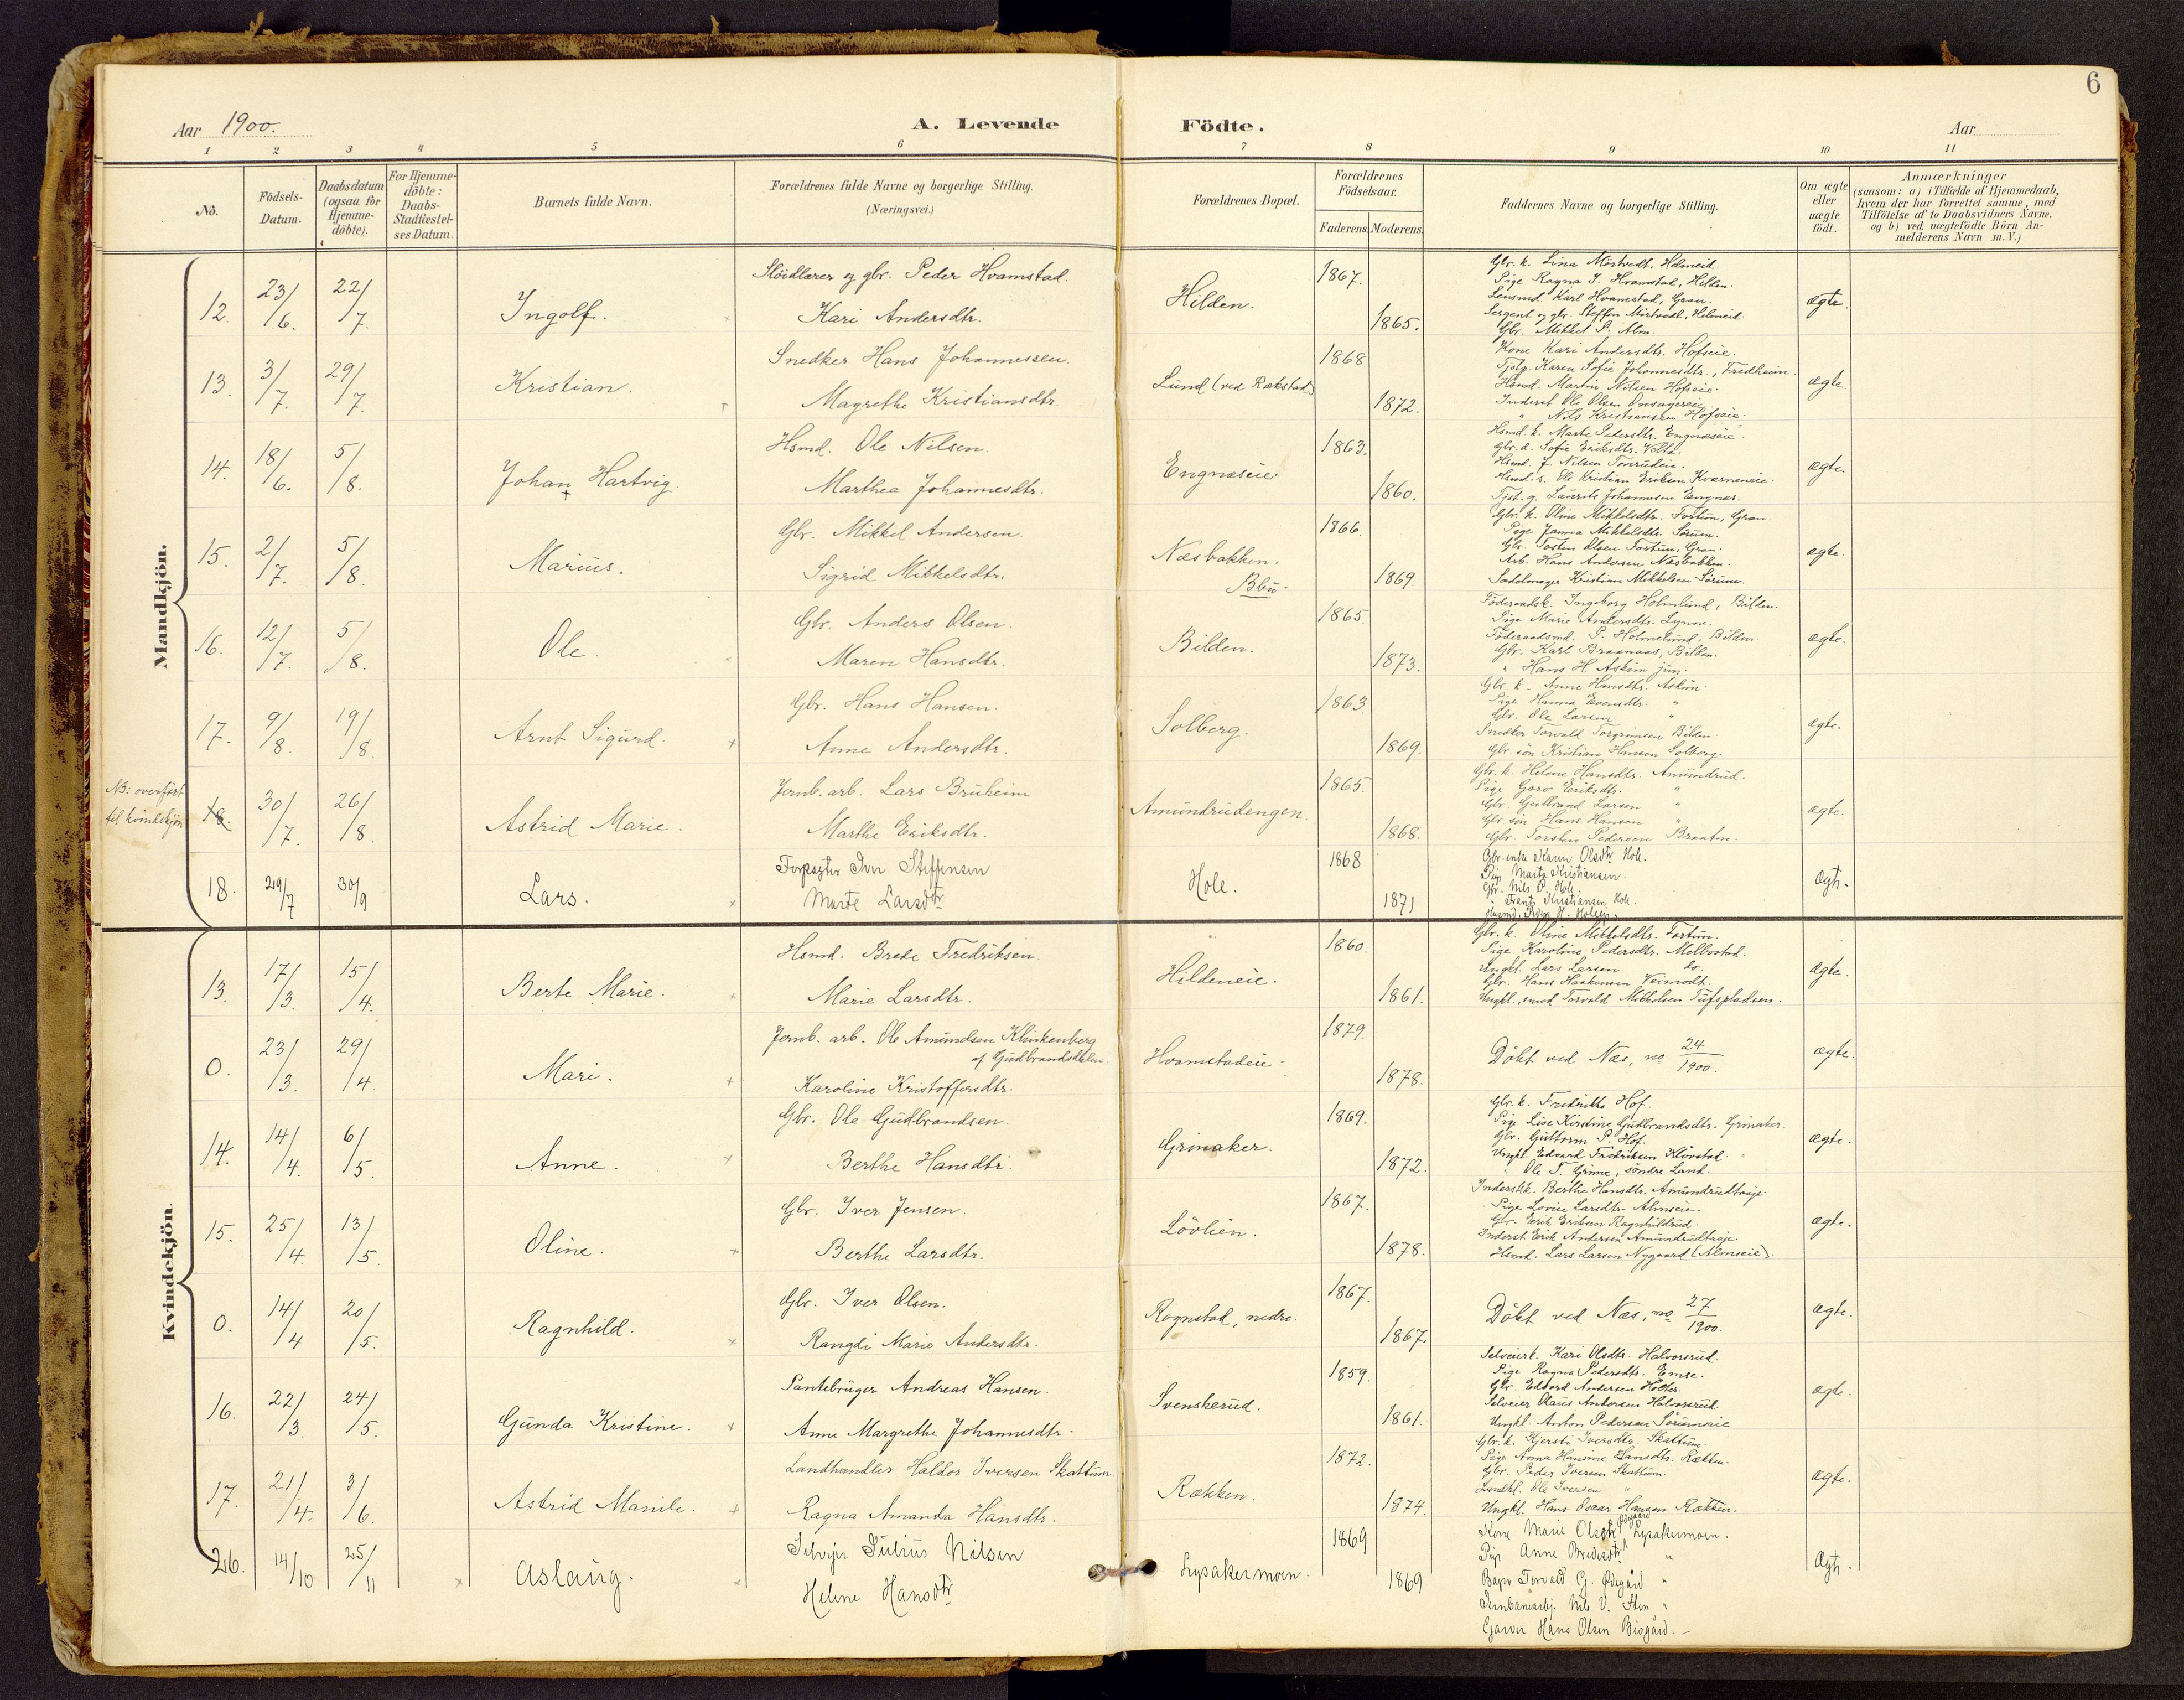 6
Aar 1900.
A. Levende Födte.
Aar
1 2 3 4 5 6 7 8 9 10 11
No.
Födsels-Datum.
Daabsdatum (ogsaa for Hjemme-döbte).
For Hjemme-döbte: Daabs-Stadfæstel-ses Datum.
Barnets fulde Navn.
Forældrenes fulde Navne og borgerlige Stilling.
(Næringsvei.)
Forældrenes Bopæl.
Forældrenes Födselsaar.
Faderens. Moderens.
Faddernes Navne og borgerlige Stilling.
Om ægte eller uægte födt.
Anmærkninger
(saasom: a) i Tilfælde af Hjemmedaab,
hvem der har forrettet samme, med
Tilföielse af to Daabsvidners Navne,
og b) ved uægtefödte Börn An-
melderens Navn m. V.)
Mandkjön.
12. 23/6. 22/7. Ingolf. Slöidlærer og gbr. Peder Hvamstad. Hilden. 1867. ægte.
Kari Andersdtr. 1865.
Gbr. k. Lina Mörtvedt, Helmeid.
Pige Ragna J. Hvamstad, Hilden.
Lensmd. Karl Hvamstad, Gran.
Sergent og gbr. Steffen Mörtvedt, Helmeid.
Gbr. Mikkel P. Alm.
13. 3/7. 29/7. Kristian. Snedker Hans Johannessen. Lund (ved Rækstad) 1868 ægte.
Magrethe Kristiansdtr. 1872.
Kone Kari Andersdtr. Hofseie.
Tjstp. Karen Sofie Johannesdtr., Fredheim.
Hsmd. Martin Nilsen Hofseie.
Inderst Ole Olsen
" Nils Kristiansen Hofseie.
14. 18/6. 5/8. Johan Hartvig. Hsmd. Ole Nilsen. Engnæseie 1863. ægte.
Marthea Johannesdtr. 1860.
Hsmd. k. Marte Pedersdtr. Engnæseie.
Gbr. d. Sofie Eriksdtr.
Hsmd. J. Nilsen
Hsmd. s. Ole Kristian Eriksen Kværneneie.
Tjst. g. Laurits Johannesen Engnæs.
15. 2/7. 5/8. Marius. Gbr. Mikkel Andersen. Næsbakken. 1866. ægte.
Sigrid Mikkelsdtr. 1869.
Gbr. k. Oline Mikkelsdtr. Fortun, Gran.
Pige Janna Mikkelsdtr. Sörum.
Gbr. Tosten Olsen Fortun, Gran.
Arb. Hans Andersen Næsbakken.
Sadelmager Kristian Mikkelsen Sörum.
16. 12/7. 5/8. Ole. Gbr. Anders Olsen. Bilden. 1865. ægte.
Maren Hansdtr. 1873.
Föderaadsk. Ingeborg Holmlund, Bilden.
Pige Marie Andersdtr. Lynne.
Föderaadsmd. P. Holmelund, Bilden.
Gbr. Karl Braanaas, Bilden.
" Hans H. Askim jun.
17. 9/8. 19/8. Arnt Sigurd. Gbr. Hans Hansen. Solberg. 1863 ægte.
Anne Andersdtr. 1869.
Gbr. k. Anne Hansdtr. Askim.
Pige Hanna Evensdtr. "
Gbr. Ole Larsen "
Snedker Torvald Torgrimsen Bilden.
Gbr. sön Kristian Hansen Solberg.
NB: overfört til kvindekjön
18. 30/7. 26/8. Astrid Marie. Jernb. arb. Lars Bruheim Amundrudengen. 1865. ægte.
Marthe Eriksdtr. 1868.
Gbr. k. Helene Hansdtr. Amundrud.
Pige Goro Eriksdtr. "
Gbr. Gulbrand Larsen "
Gbr. sön Hans Hansen "
Gbr. Torsten Pedersen Braaten.
18. 29/7 30/9 Lars. Forpagter Iver Steffensen Hole. 1868 Ægte.
Marte Larsdtr 1871
Gbr. enke Karen Olsdtr Hole.
Pige Marta Kristiansen.
Gbr. Nils P. Hole.
" Frantz Kristiansen Hole.
Husmd. Peder H. Holeeie.
Kvindekjön.
13. 17/3. 15/4. Berte Marie. Hsmd. Brede Fredriksen. Hildeneie. 1860. Ægte.
Marie Larsdtr. 1861.
Gbr. k. Oline Mikkelsdtr. Fortun.
Pige Karoline Pedersdtr. Melbostad.
Ungkl. Lars Larsen do.
Gbr. Hans Haakensen Vermodt.
Ungkl., smed Torvald Mikkelsen Tufspladsen.
0. 23/3. 29/4. Mari. Jernb. arb. Ole Amundsen Klinkenberg Hvamstadeie 1879. ægte.
af Gudbrandsdalen.
Karoline Kristoffersdtr. 1878.
Döbt ved Næs, no 24/1900.
14. 14/4. 6/5. Anne. Gbr. Ole Gudbrandsen. Grinaker. 1869. ægte.
Berthe Hansdtr. 1872.
Gbr. k. Fredrikke Hof.
Pige Lise Kirstine Gudbrandsdtr. Grinaker.
Gbr. Guttorm P. Hof.
Ungkl. Edvard Fredriksen Klövstad.
" Ole T. Grime, söndre Land.
15. 25/4. 13/5. Oline. Gbr. Iver Jensen. Lövlien. 1867. ægte.
Berthe Larsdtr. 1878.
Inderstk. Berthe Hansdtr. Amundrudtaaje.
Pige Lovise Larsdtr. Almseie.
Gbr. Erik Eriksen Ragnhildrud.
Inderst Erik Andersen Amundrudtaaje.
Hsmd. Lars Larsen Nygaard (Almseie).
0. 14/4 20/5. Ragnhild. Gbr. Iver Olsen. Rognstad, nedre. 1867. ægte.
Rangdi Marie Andersdtr. 1867.
Döbt ved Næs, no 27/1900.
16. 22/3. 24/5. Gunda Kristine. Pantebruger Andreas Hansen. Svenskerud. 1859. ægte.
Anne Margrethe Johannesdtr. 1861.
Selveierk. Kari Olsdtr. Halvorsrud.
Pige Ragna Pedersdtr. Emse.
Gbr. Edvard Andersen Holter.
Selveier Olaus Andersen Halvorsrud.
Ungkl. Anton Pedersen Sörumseie
17. 21/4. 3/6. Astrid Manile. Landhandler Haldor Iversen Skattum. Rækken. 1872. ægte.
Ragna Amanda Hansdtr. 1874.
Gbr. k. Kjersti Iversdtr. Skattum.
Pige Anna Hansine Hansdtr. Rækken.
Gbr. Peder Iversen Skattum.
Landhl. Ole Iversen "
Ungkl. Hans Oscar Hansen Rækken.
26. 14/10 25/11 Aslaug. Selveier Julius Nilsen Lysakermoen. 1869 Ægte.
Helene Hansdtr 1869
Kone Marie Olsdtr Ødegård Lysakermoen.
Pige Anne Bredesdtr "
Bager Torvald G. Ødegård "
Jernbanearbj. Nils V. Sten "
Garver Hans Olsen Bisgård.